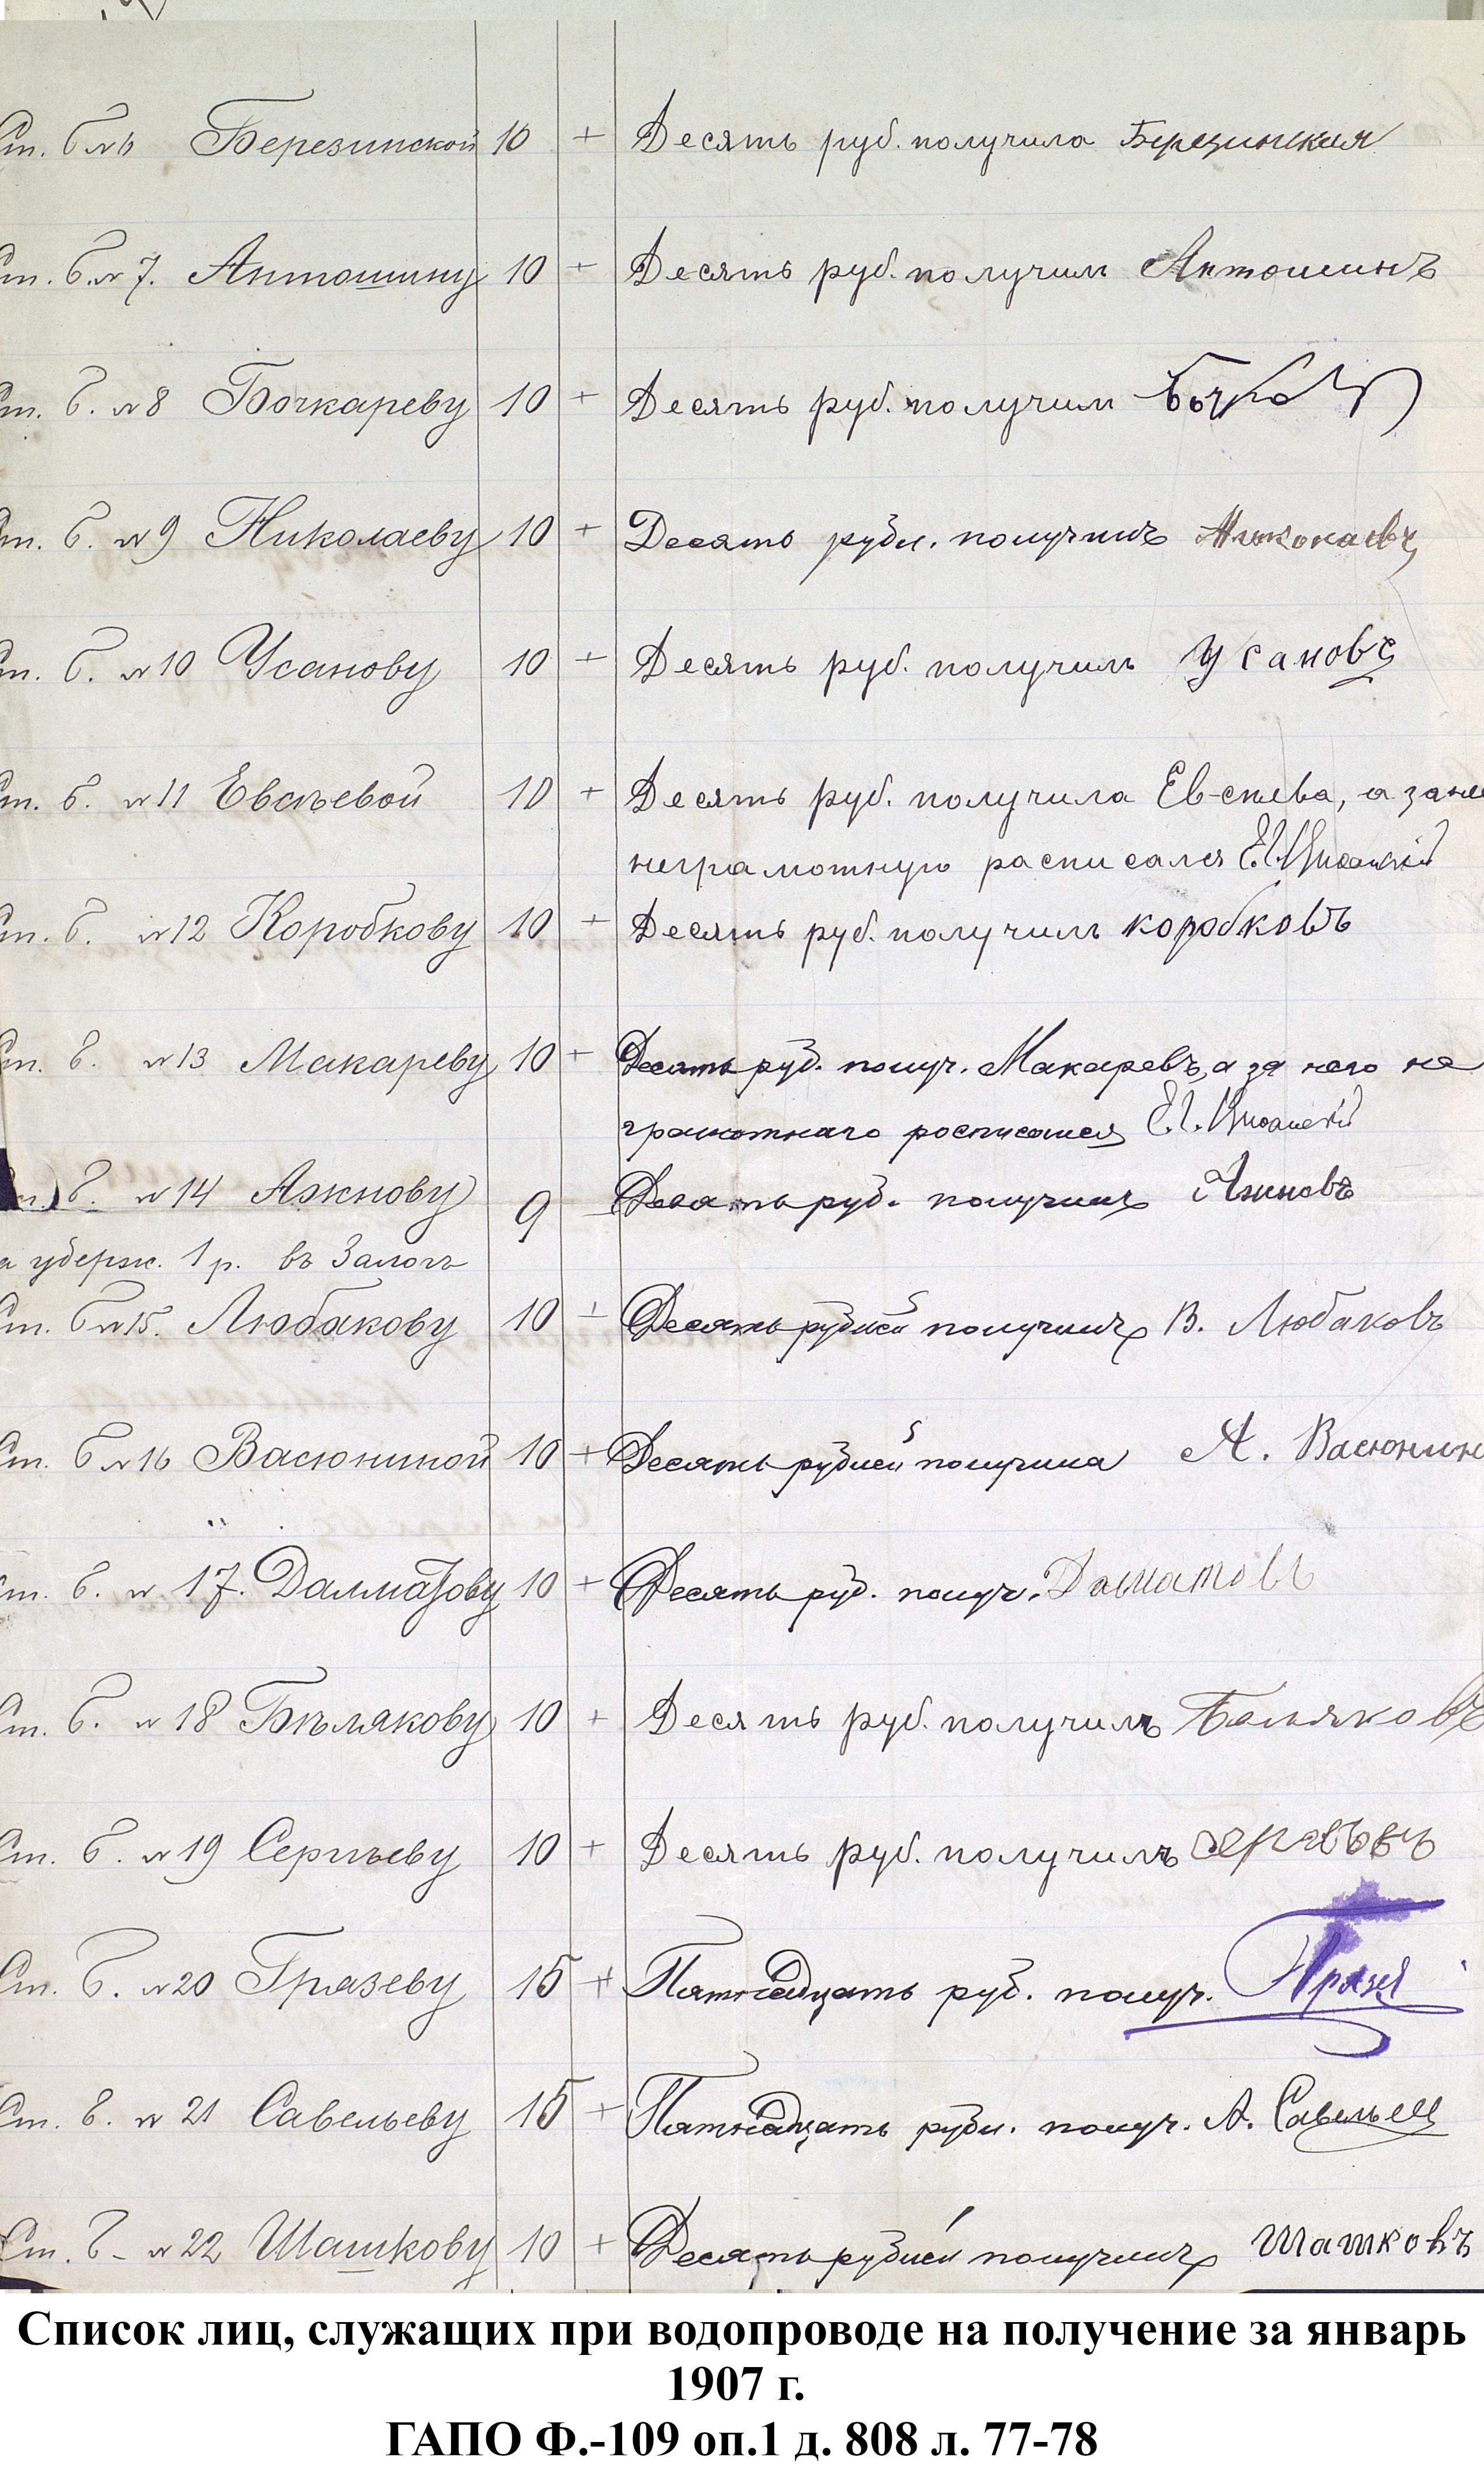 Ст. б. №6 Березинской 10 + Десять руб. получила Березинская
Ст. б. № 7. Антошину 10 + Десять руб. получил Антошинъ
Ст. б. № 8 Бочкареву 10 + Десять руб. получил
Ст. б. № 9 Николаеву 10 + Десять рубл. получилъ Николаевъ
Ст. б. № 10 Усанову 10 + Десять руб. получилъ Усановъ
Ст. б. № 11 Евсѣевой 10 + Десять руб. получила Евсеева, а за нее
неграмотную расписался
Ст. б. № 12 Коробкову 10 + Десять руб. получилъ коробковъ
Ст. б. № 13 Макареву 10 + Десять руб. получ. Макаревъ, а за него не
грамотнаго росписался
Ст. б. № 14 Ажнову 9 Девять руб. получилъ Ажновъ
а удерж. 1 р. въ Залогъ
Ст. б. № 15. Любакову 10 + Десять рублей получилъ В. Любаковъ
Ст. б. № 16 Васюниной 10 + Десять рублей получила А. Васюнин
Ст. б. № 17. Далматову 10 + Десять руб. получ. Далматовъ
Ст. б. № 18 Бѣлякову 10 + Десять руб. получилъ Беляковъ
Ст. б. № 19 Сергѣеву 10 + Десять руб. получилъ
Ст. б. № 20 Грязеву 15 + Пятнадцать руб. получ.
Ст. б. № 21 Савельеву 15 + Пятнадцать рубл. получ. А. Савельев
Ст. б. № 22 Шашкову 10 + Десять рублей получилъ Шашковъ
Список лиц, служащих при водопроводе на получение за январь
1907 г.
ГАПО Ф.-109 оп.1 д. 808 л. 77-78